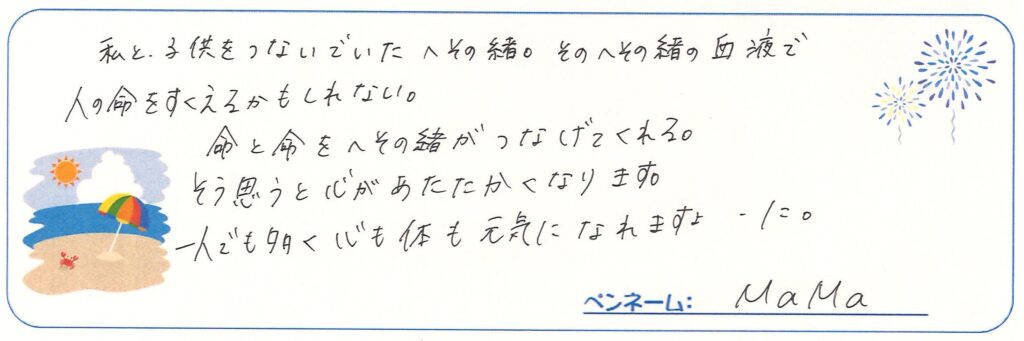 私と、子供をつないでいたへその緒。そのへその緒の血液で
人の命をすくえるかもしれない。
命と命をへその緒がつなげてくれる。
そう思うと心があたたかくなります。
一人でも多く心も体も元気になれますよーに。
ペンネーム: MaMa